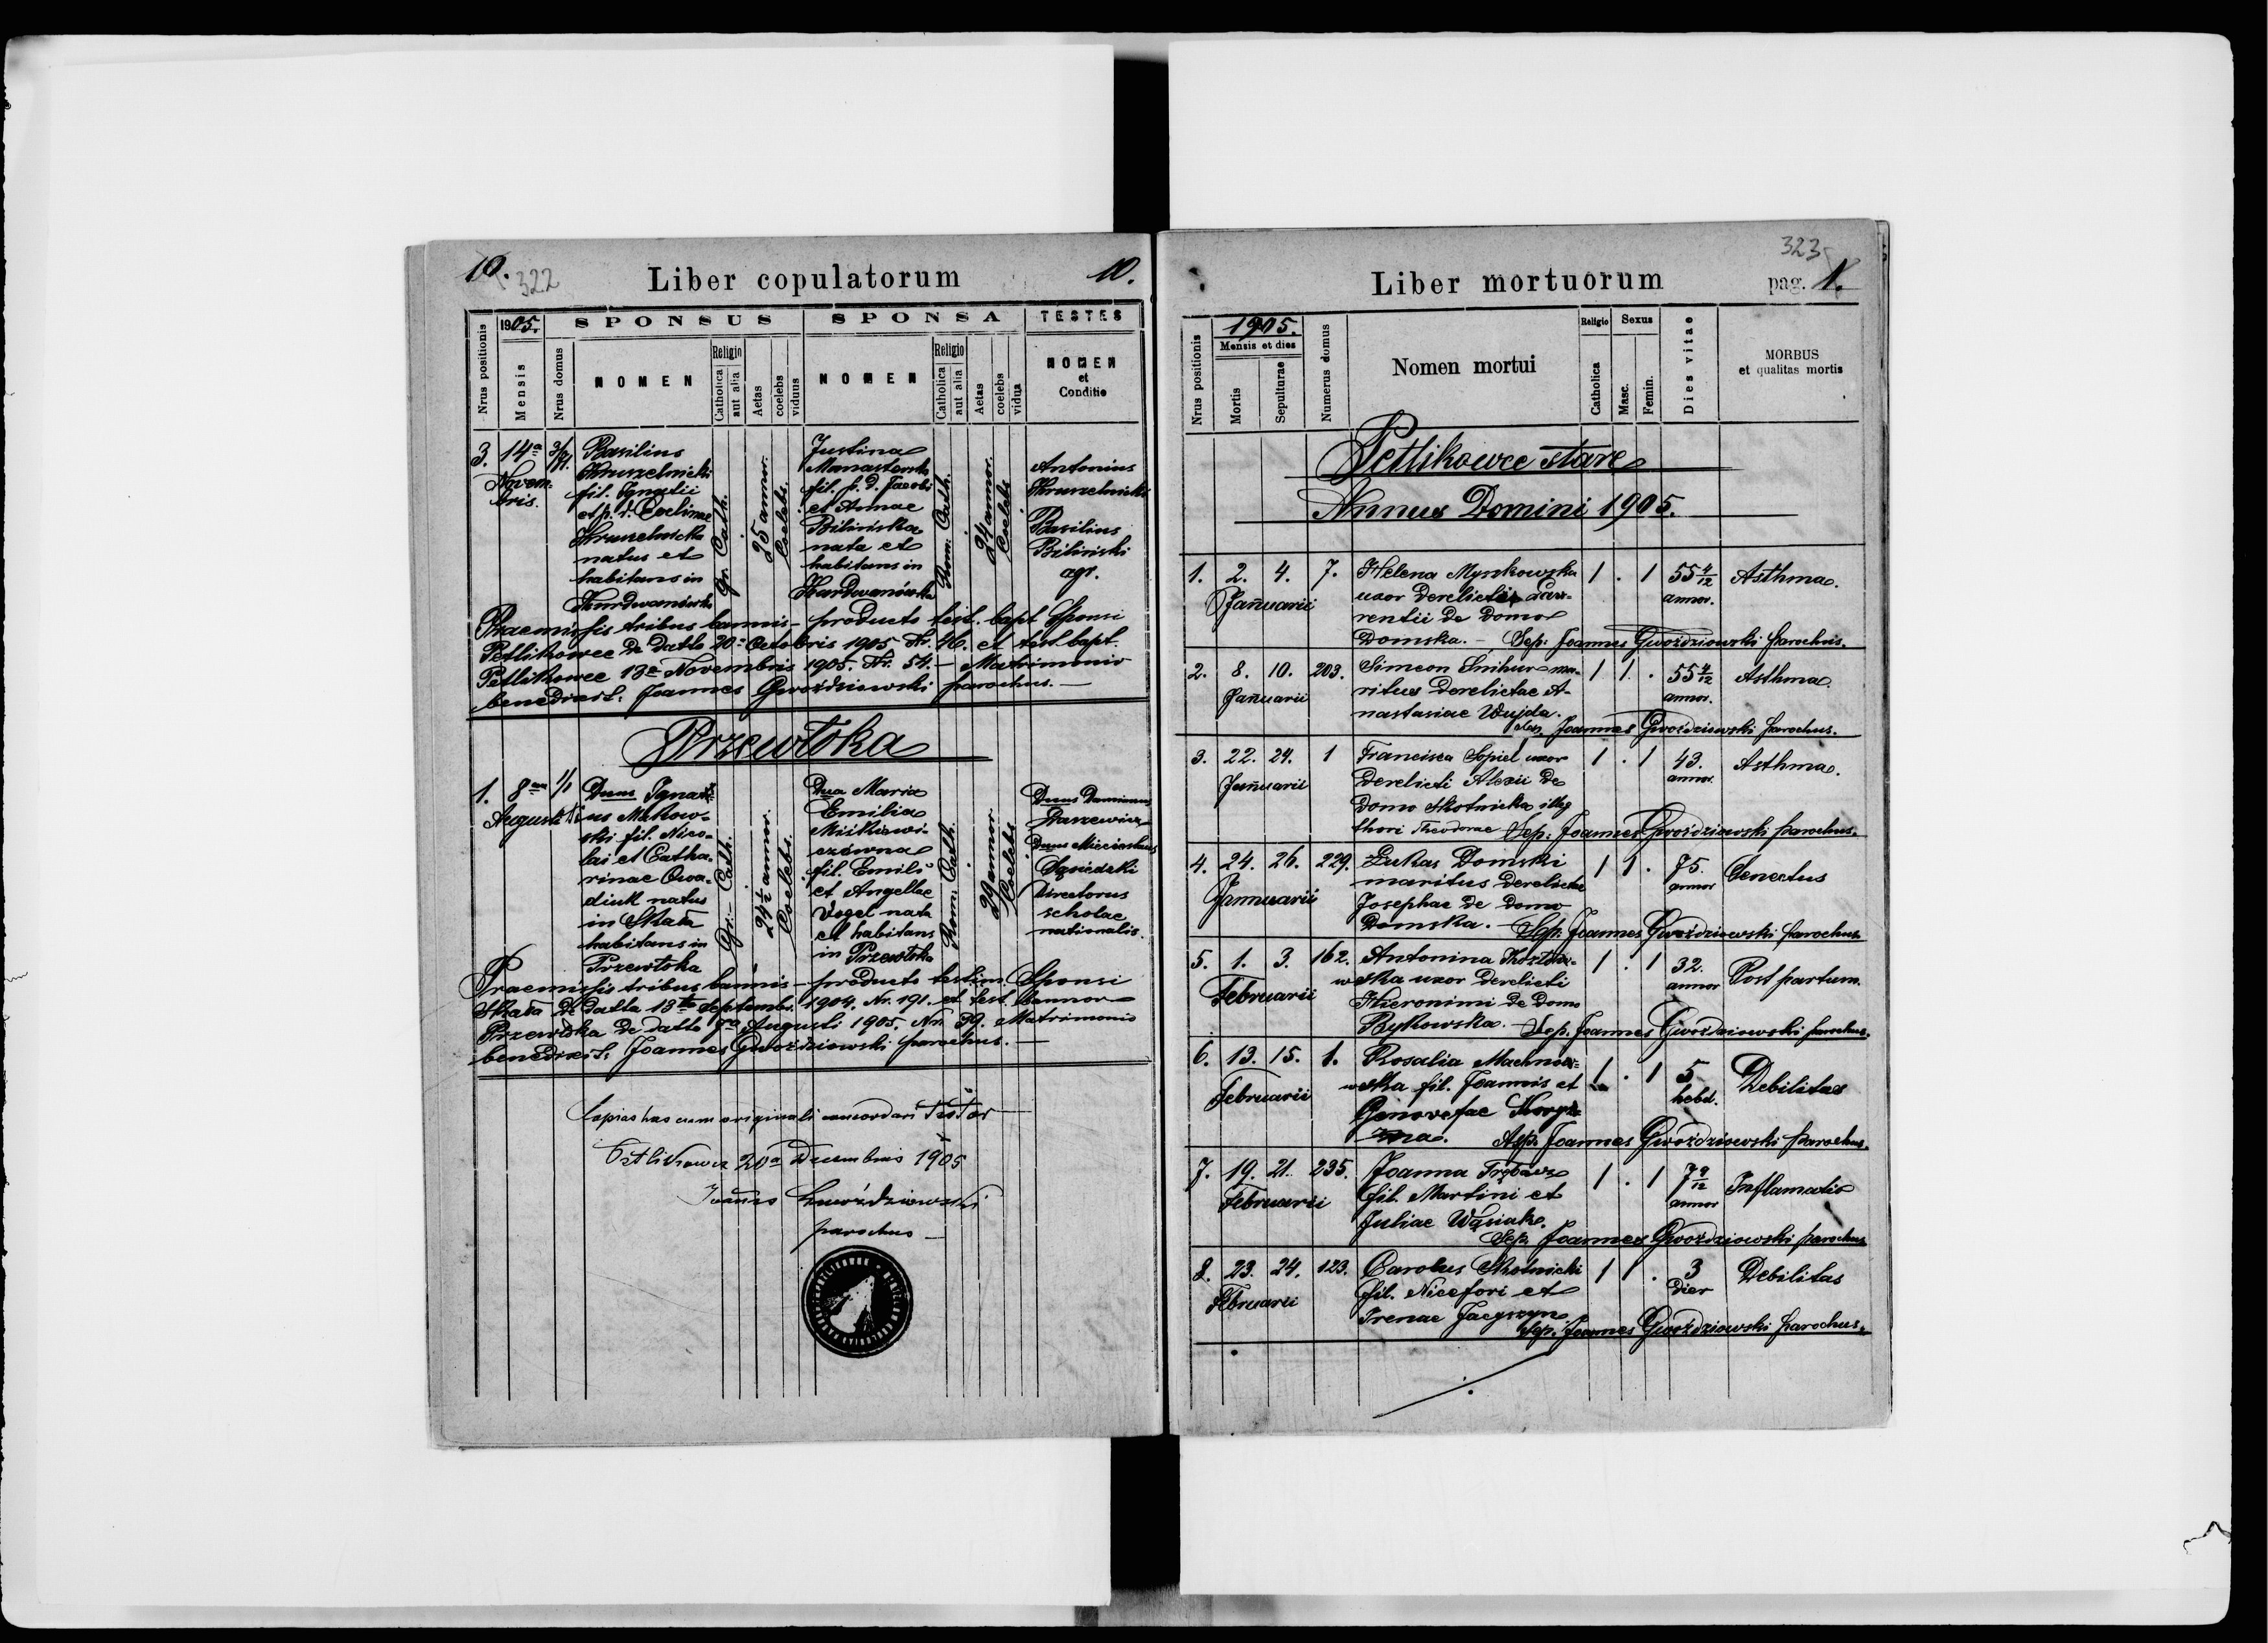 10. 322 Liber copulatorum 10.
1905. SPONSUS SPONSA TESTES
Nrus positionis
Mensis
Nrus domus
NOMEN
Religio
Catholica
aut alia
Aetas
coelebs
viduus
NOMEN
Religio
Catholica
aut alia
Aetas
coelebs
vidua
NOMEN
et
Conditio
3. 14a
Novem-
bris.
Basilius
Kruszelnicki
fil. Ignatii
et p. d. Evelinae
Kruszelnicka
natus et
habitans in
Kurdwanówka
Gr. Cath.
25 annor.
Coelebs.
Justina
fil. p. d. Jacobi
et Annae
Bilińska
nata et
habitans in
Kurdwanówka
Rom. Cath.
24 annor.
Coelebs
Antonius
Kruszelnicki
Basilius
Biliński
agr.
Praemissis tribus bannis – producto test. bapt. Sponsi
Petlikowce de datto 20a Octobris 1905 Nr. 46. et test. bapt.
Petlikowce 13a Novembris 1905. Nr. 54. – Matrimonio
benedixit: Joannes Gwoździowski parochus. –
Przewłoka
1. 8va
Augusti
1/1
Dnus Ignati-
us Makow-
ski fil. Nico-
lai et Catha-
rinae Owa-
diuk natus
in Skała
habitans in
Przewłoka
Gr. – Cath.
24½ annor.
Coelebs.
Dna Maria
Emilia
czówna
fil. Emili
et Angellae
Vogel nata
et habitans
in Przewłoka
Rom. Cath.
29 annor.
Coelebs
Dnus Damianus
Daszewicz
Dnus Miecislaus
Sąsiedzki
Directorus
scholae
nationalis.
Praemissis tribus bannis – producto testim. Sponsi
Skała de datta 13tio Septembr. 1904. Nr. 191. et test. bannor
Przewłoka de datto 7a Augusti 1905. Nr. 39. Matrimonio
benedixit: Joannes Gwoździowski parochus. –
Copias has cum originali concordari testor
Petlikowce 20a Decembris 1905
Joannes Gwoździowski
parochus –
323
Liber mortuorum pag. 1.
Nrus positionis
1905.
Mensis et dies
Mortis
Sepulturae
Numerus domus
Nomen mortui
Religio
Catholica
Sexus
Masc.
Femin.
Dies vitae
MORBUS
et qualitas mortis
Petlikowce stare
Annus Domini 1905.
1. 2. 4. 7. Helena Myszkowska 1 . 1 55 4/12 Asthma.
Januarii uxor derelicti Lau- annor.
rentii de domo
Domska. – Sep. Joannes Gwoździowski parochus.
2. 8. 10. 203. Simeon Snihur ma- 1 1. . 55 4/12 Asthma.
Januarii ritus derelictae A- annor.
nastasiae Wujda.
Sep. Joannes Gwoździowski parochus.
3. 22. 24. 1 Francisca Sopiel uxor 1 . 1 43. Asthma.
Januarii derelicti Alexii de annor.
domo Skotnicka illeg
thori Theodorae Sep: Joannes Gwoździowski parochus.
4. 24. 26. 229. Lukas Domski 1 1 . 75. Senectus
Januarii maritus derelictae annor
Josephae de domo
Domska. – Sep. Joannes Gwoździowski parochus.
5. 1. 3. 162. Antonina 1 . 1 32. Post partum.
Februarii wska uxor derelicti annor
Hieronimi de domo
Bykowska. – Sep. Joannes Gwoździowski parochus.
6. 13. 15. 1. Rosalia Machno- 1 . 1 5 Debilitas
Februarii wska fil. Joannis et hebd.
Genovefae
Sep. Joannes Gwoździowski parochus.
7. 19. 21. 235. Joanna Trębacz 1 . 1 7 9/12 Inflamatio
Februarii fil. Martini et annor
Juliae Wąsiak.
Sep. Joannes Gwoździowski parochus
8. 23. 24. 123. Carolus Skotnicki 1 1 . 3 Debilitas
Februarii fil. Nicefori et dier
Irenae Jacyszyn
Sep. Joannes Gwoździowski parochus.